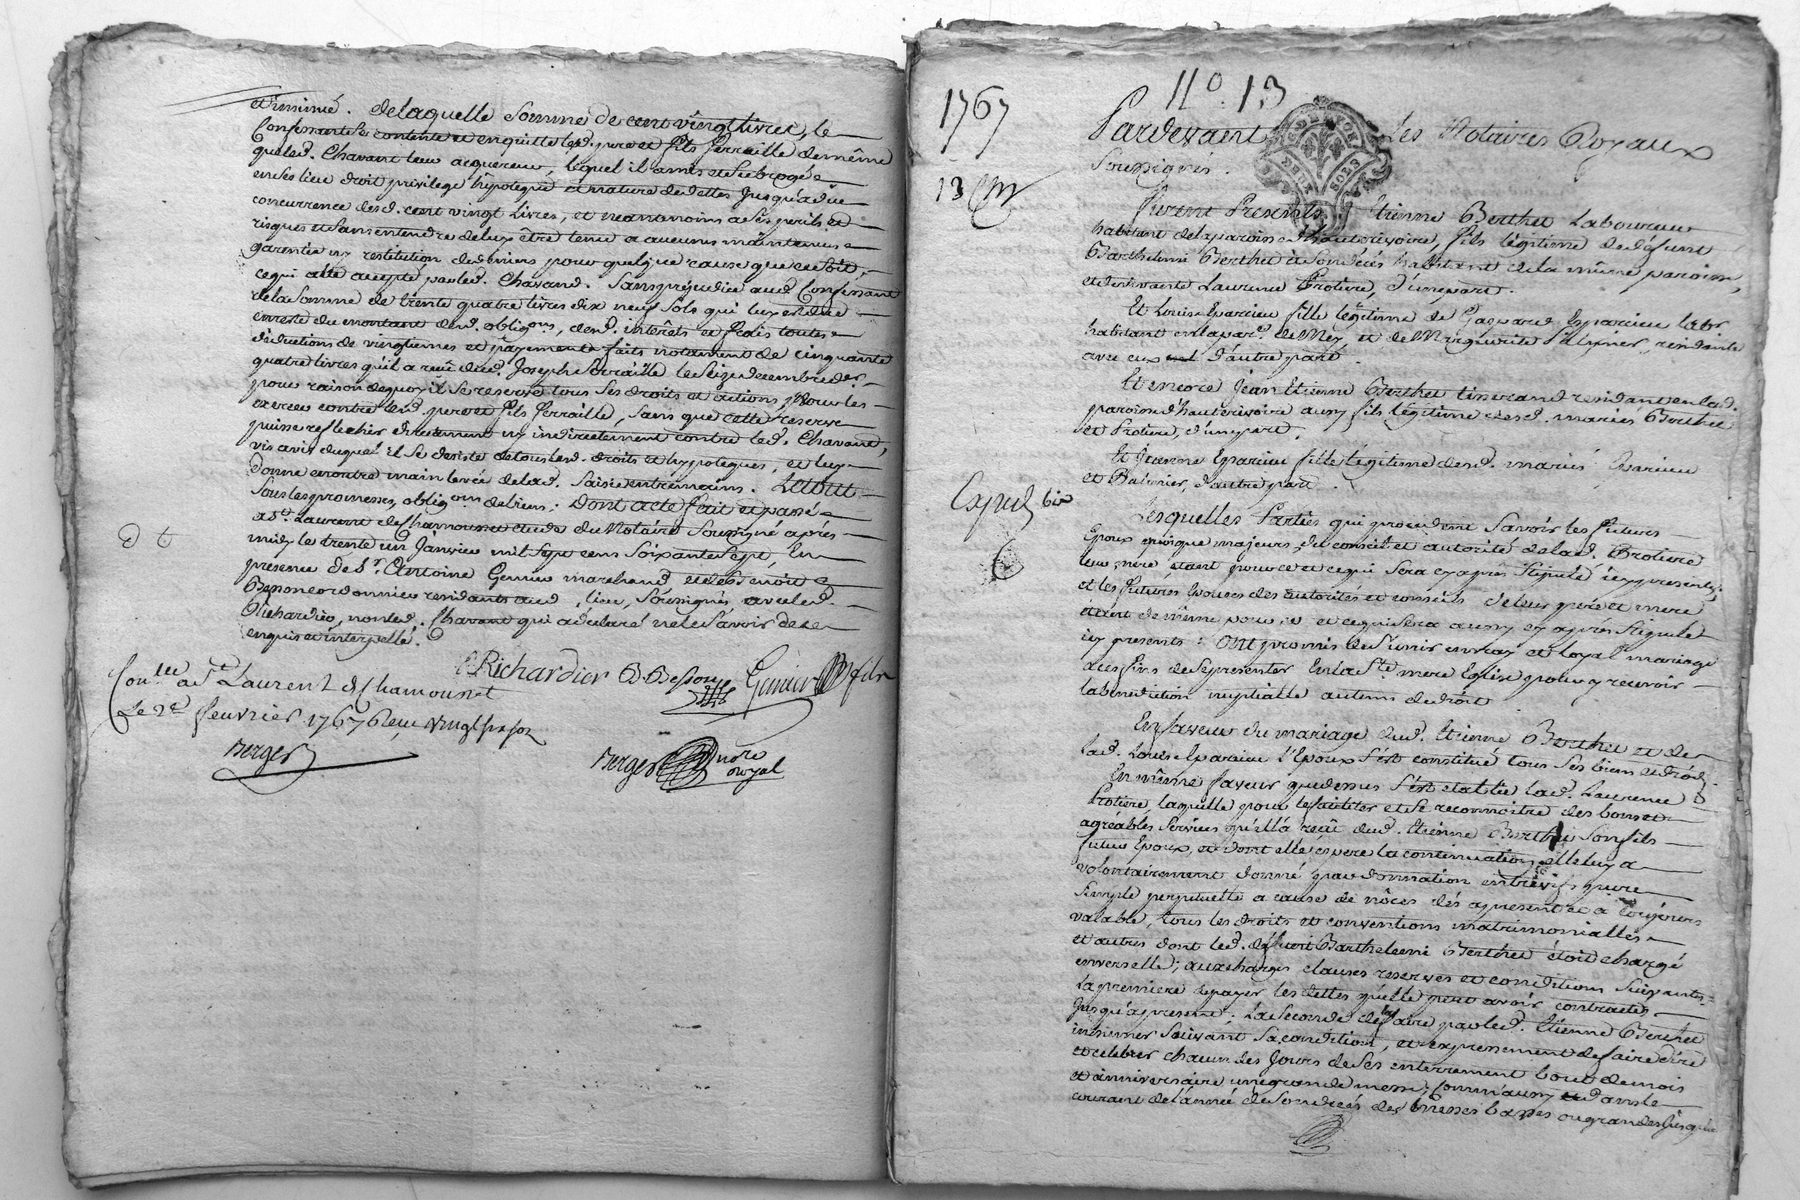 et insinué. de laquelle somme de cent vingt livres, le
Confessant se contente et en quitte lesd. pere et fils Ferraille de même
que led. Chavant leur acquereur, lequel il a mis et subrogé
en ses lieu droit privilege hipoteque et nature de dettes jusqu'à due
concurrence desd. cent vingt livres, et neantmoins a ses perils et
risques et sans entendre de luy être tenu a aucunes maintenue
garentie ny restitution de deniers pour quelque cause que ce soit,
ce qui a été accepté par led. Chavand. Sans préjudice aud. Confessant
de la somme de trente quatre livres dix neuf sols qui luy est due
en reste du montant desd. obligons, desd. interêts et frais toutes
déductions de vingtiemes et payements faits notament de cinquante
quatre livres qu'il a reçu dud. Joseph Ferraille le seize decembre der
pour raison de quoy il se reserve tous ses droits et actions, pour les
exercer contre lesd. pere et fils Ferraille, sans que cette reserve
puisse reflechir directement ny indirectement contre led. Chavant,
vis avis duquel il se desiste de tous lesd. droits et hypoteques, et luy
donne en outre main levée de lad. saisie entre mains. Le tout
sous les promesses, obligons de biens: Dont acte fait et passé
a St. Laurent de Chamousset etude du Notaire soussigné après
midy le trente un Janvier mil sept cens soixante sept, En
presence de Sr. Antoine Genier marchand et de Benoit
Besson cordonnier residants aud. lieu, soussignés avec led.
Richardier, non led. Chavant qui a déclaré ne le savoir de ce
enquis et interpellé.
Richardier B. Besson Genier fils
Conlle a St Laurent de Chamousset
Le 2e fevrier 1767 Reçu vingt six sols
Berger
Berger nore
royal
1767
No. 13
13
Pardevant Les Notaires Royaux
Soussignés.
Furent Presents Etienne Berthet Laboureur
habitant de la paroisse d'hauterivoire, fils légitime de defunt
Barthelemi Berthet a son décés habitant de la même paroisse,
et de vivante Laurence Protiere, d'une part.
Et Louise Eparieu fille légitime de Gaspard Eparieu labr
habitant en la par. de Mey, et de Marguerite Palmier, residante
avec eux d'autre part.
Et encore Jean Etienne Berthet tisserand residant en lad.
paroisse d'hauterivoire aussy fils légitime desd. mariés Berthet
et Protiere, d'une part.
Et Jeanne Eparieu fille légitime desd. mariés Eparieu
et Palmier, d'autre part.
Exped. bis
Lesquelles Parties qui procedent savoir les futurs
Epoux quoique majeurs du conseil et autorité de lad. Protiere
leur mere etant pour ce et ce qui sera cy après stipulé icy presente,
et les futures Epouses des autorités et conseils de leurs pere et mere
etant de même pour ce et ce qui sera aussy cy après stipulé
icy presents: Ont promis de s'unir en vray et loyal mariage
a ces fins de se presenter en la Ste. mere Eglise pour y recevoir
la benediction nuptialle au tems de droit.
En faveur du mariage dud. Etienne Berthet et de
lad. Louise Eparieu l'Epoux s'est constitué tous ses biens et droits
En même faveur que dessus s'est etablie lad. Laurence
Protiere laquelle pour le faciliter et se reconnoitre des bons et
agréables services qu'elle a reçu dud. Etienne Berthet son fils
futur Epoux, et dont elle espere la continuation, elle luy a
volontairement donné par donnation entrevifs pure
simple perpetuelle a cause de nôces dès apresent et a toujours
valable, tous les droits et conventions matrimonialles
et autres dont led. defunt Barthelemi Berthet étoit chargé
envers elle; aux charges clauses reserves et conditions suivantes:
La premiere de payer les dettes qu'elle peut avoir contractées
jusqu'à present; La seconde de la faire par led. Etienne Berthet
inhumer suivant sa condition, et expressement de faire dire
et celebrer chacun des jours de ses enterrement bout de mois
et anniversaire une grande messe, comm'aussy dans le
courant de l'année de son décés des messes basses ou grandes jusqu'a